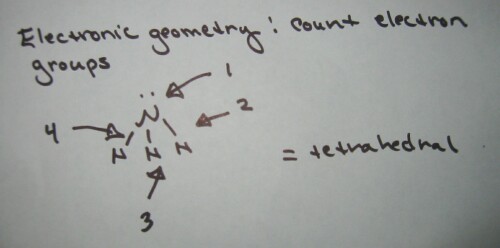 Electronic geometry: count electron
groups
1
N̈
2
4
N N N
= tetrahedral
3